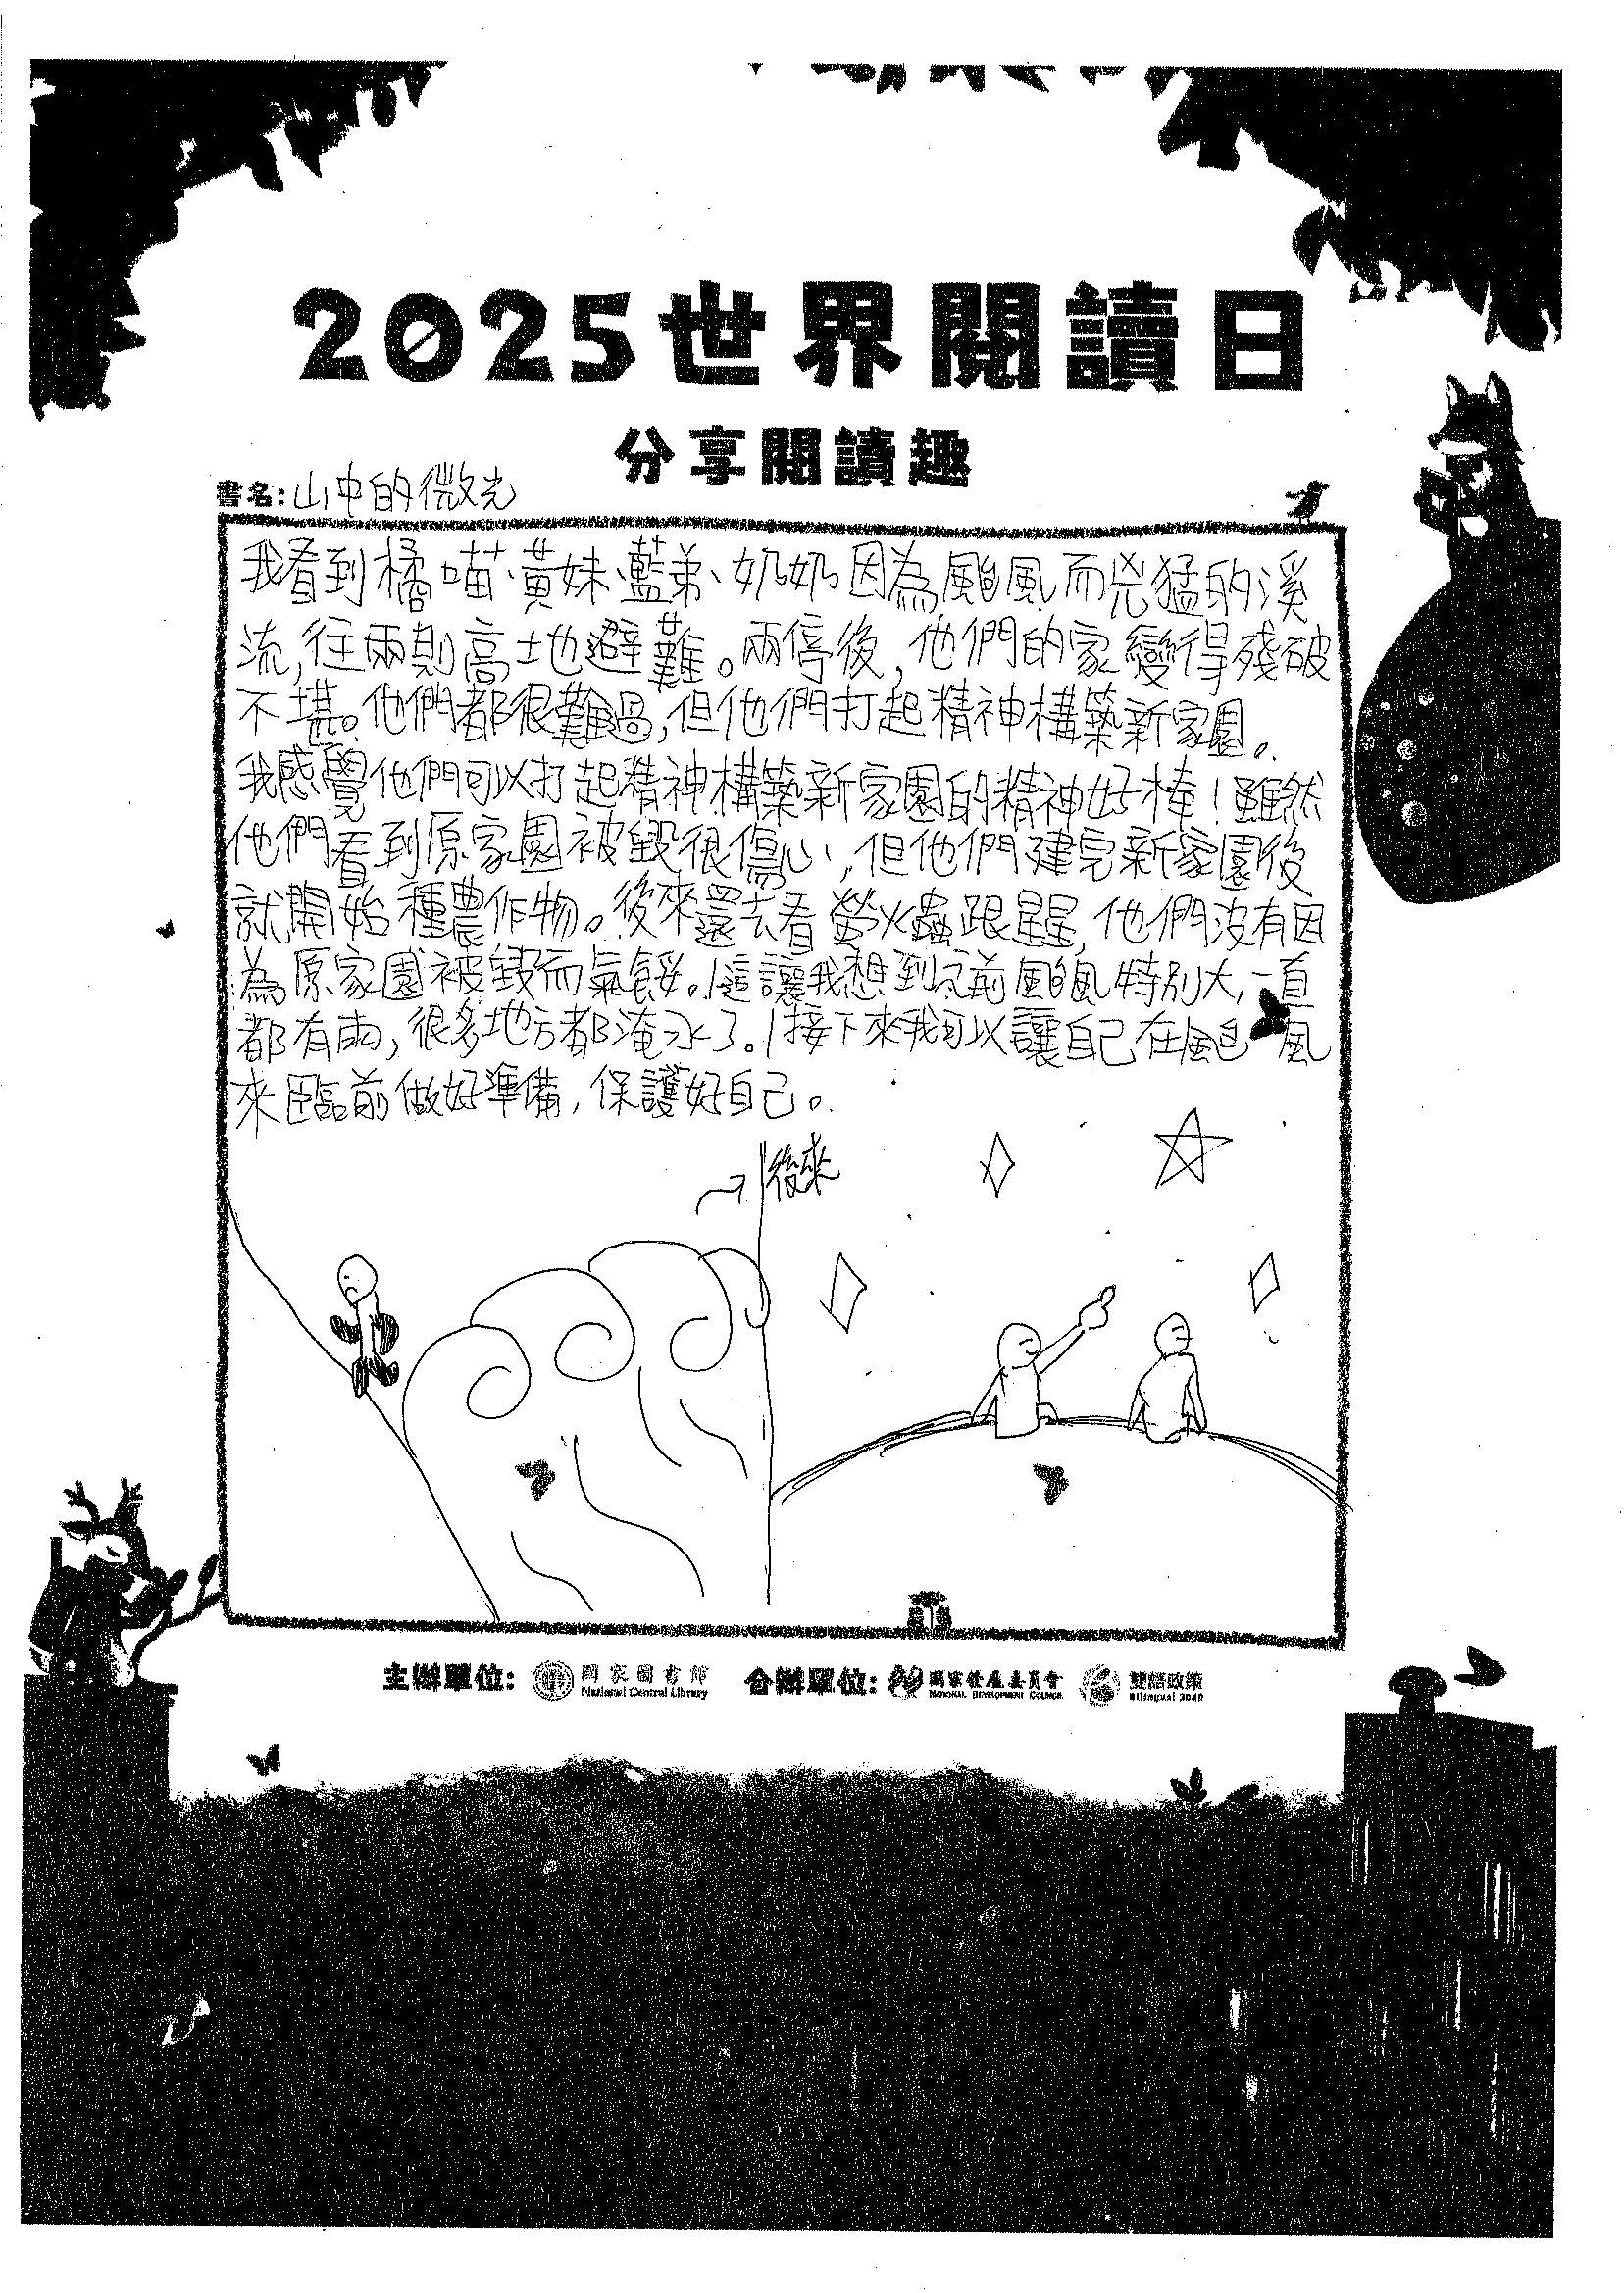 2025世界閱讀日
分享閱讀趣
書名:山中的微光
我看到橘喵、黃妹、藍弟、奶奶因為颱風而兇猛的溪
流,往兩則高地避難。雨停後,他們的家變得殘破
不堪。他們都很難過,但他們打起精神構築新家園。
我感覺他們可以打起精神構築新家園的精神好棒!雖然
他們看到原家園被毀很傷心,但他們建完新家園後
就開始種農作物。後來還去看螢火蟲跟星星,他們沒有因
為原家園被毀而氣餒。這讓我想到之前颱風特別大,一直
都有雨,很多地方都淹水了。接下來我可以讓自己在颱風
來臨前做好準備,保護好自己。
後來
主辦單位: 國家圖書館 合辦單位: 國家發展委員會 雙語政策
National Central Library NATIONAL DEVELOPMENT COUNCIL Bilingual 2030